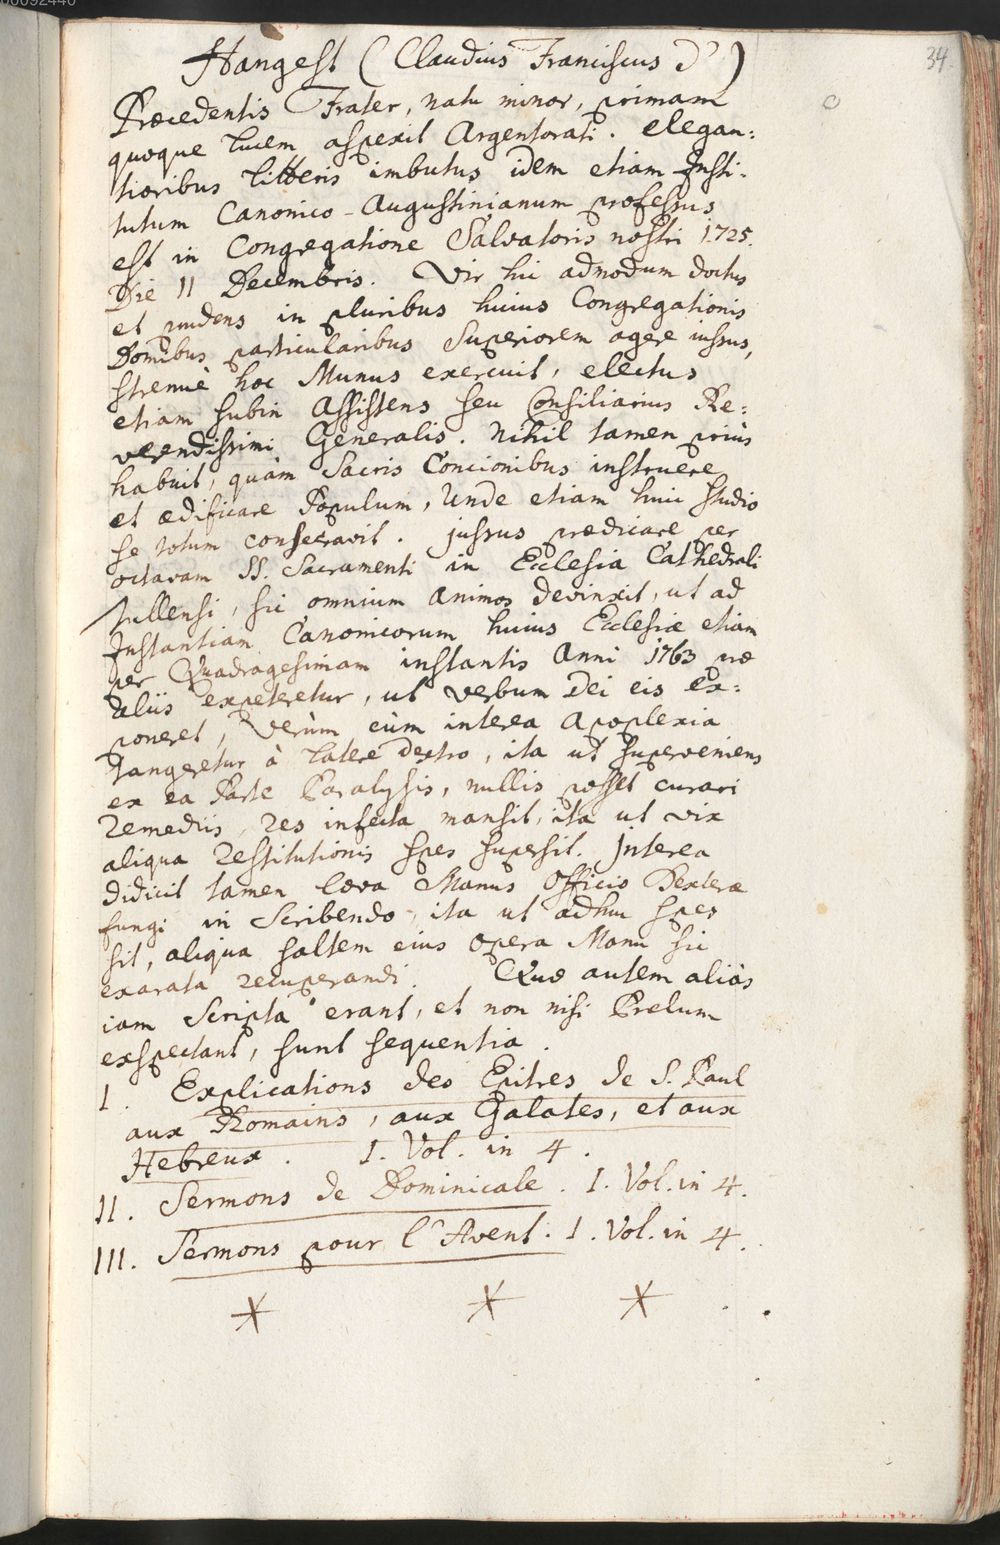 34.
Hangest (Claudius Franciscus d')
Præcedentis Frater, natu minor, primam
quoque lucem aspexit Argentorati. elegan:
tioribus litteris imbutus idem etiam Insti:
tutum Canonico-Augustinianum professus
est in Congregatione Salvatoris nostri 1725.
Die 11 Decembris. Vir hic admodum doctus
et prudens in pluribus huius Congregationis
Domibus particularibus Superiorem agere iussus,
strenuè hoc Munus exercuit, electus
etiam subin Assistens seu Consiliarius Re:
verendissimi Generalis. Nihil tamen priùs
habuit, quàm Sacris Concionibus instruere
et ædificare Populum, Unde etiam huic studio
se totum consecravit. jussus prædicare per
octavam SS. Sacramenti in Ecclesia Cathedrali
Tullensi, sic omnium animos devinxit, ut ad
Instantiam Canonicorum huius Ecclesiæ etiam
per Quadragesimam instantis Anni 1763 præ
aliis expeteretur, ut verbum Dei eis ex:
poneret, Verùm cùm interea apoplexia
tangeretur à latere dextro, ita ut superveniens
ex ea Parte Paralysis, nullis posset curari
remediis, res infecta mansit, ita ut vix
aliqua restitutionis spes supersit. Interea
didicit tamen læva Manus officio Dexteræ
fungi in Scribendo, ita ut adhuc spes
sit, aliqua saltem eius opera Manu sic
exarata recuperandi. Quæ autem aliàs
iam Scripta erant, et non nisi Prelum
exspectant, sunt sequentia.
I. Explications des Epitres de S. Paul
aux Romains, aux Galates, et aux
Hebreux. I. Vol. in 4.
II. Sermons de Dominicale. I. Vol. in 4.
III. Sermons pour l'Avent. I. Vol. in 4.